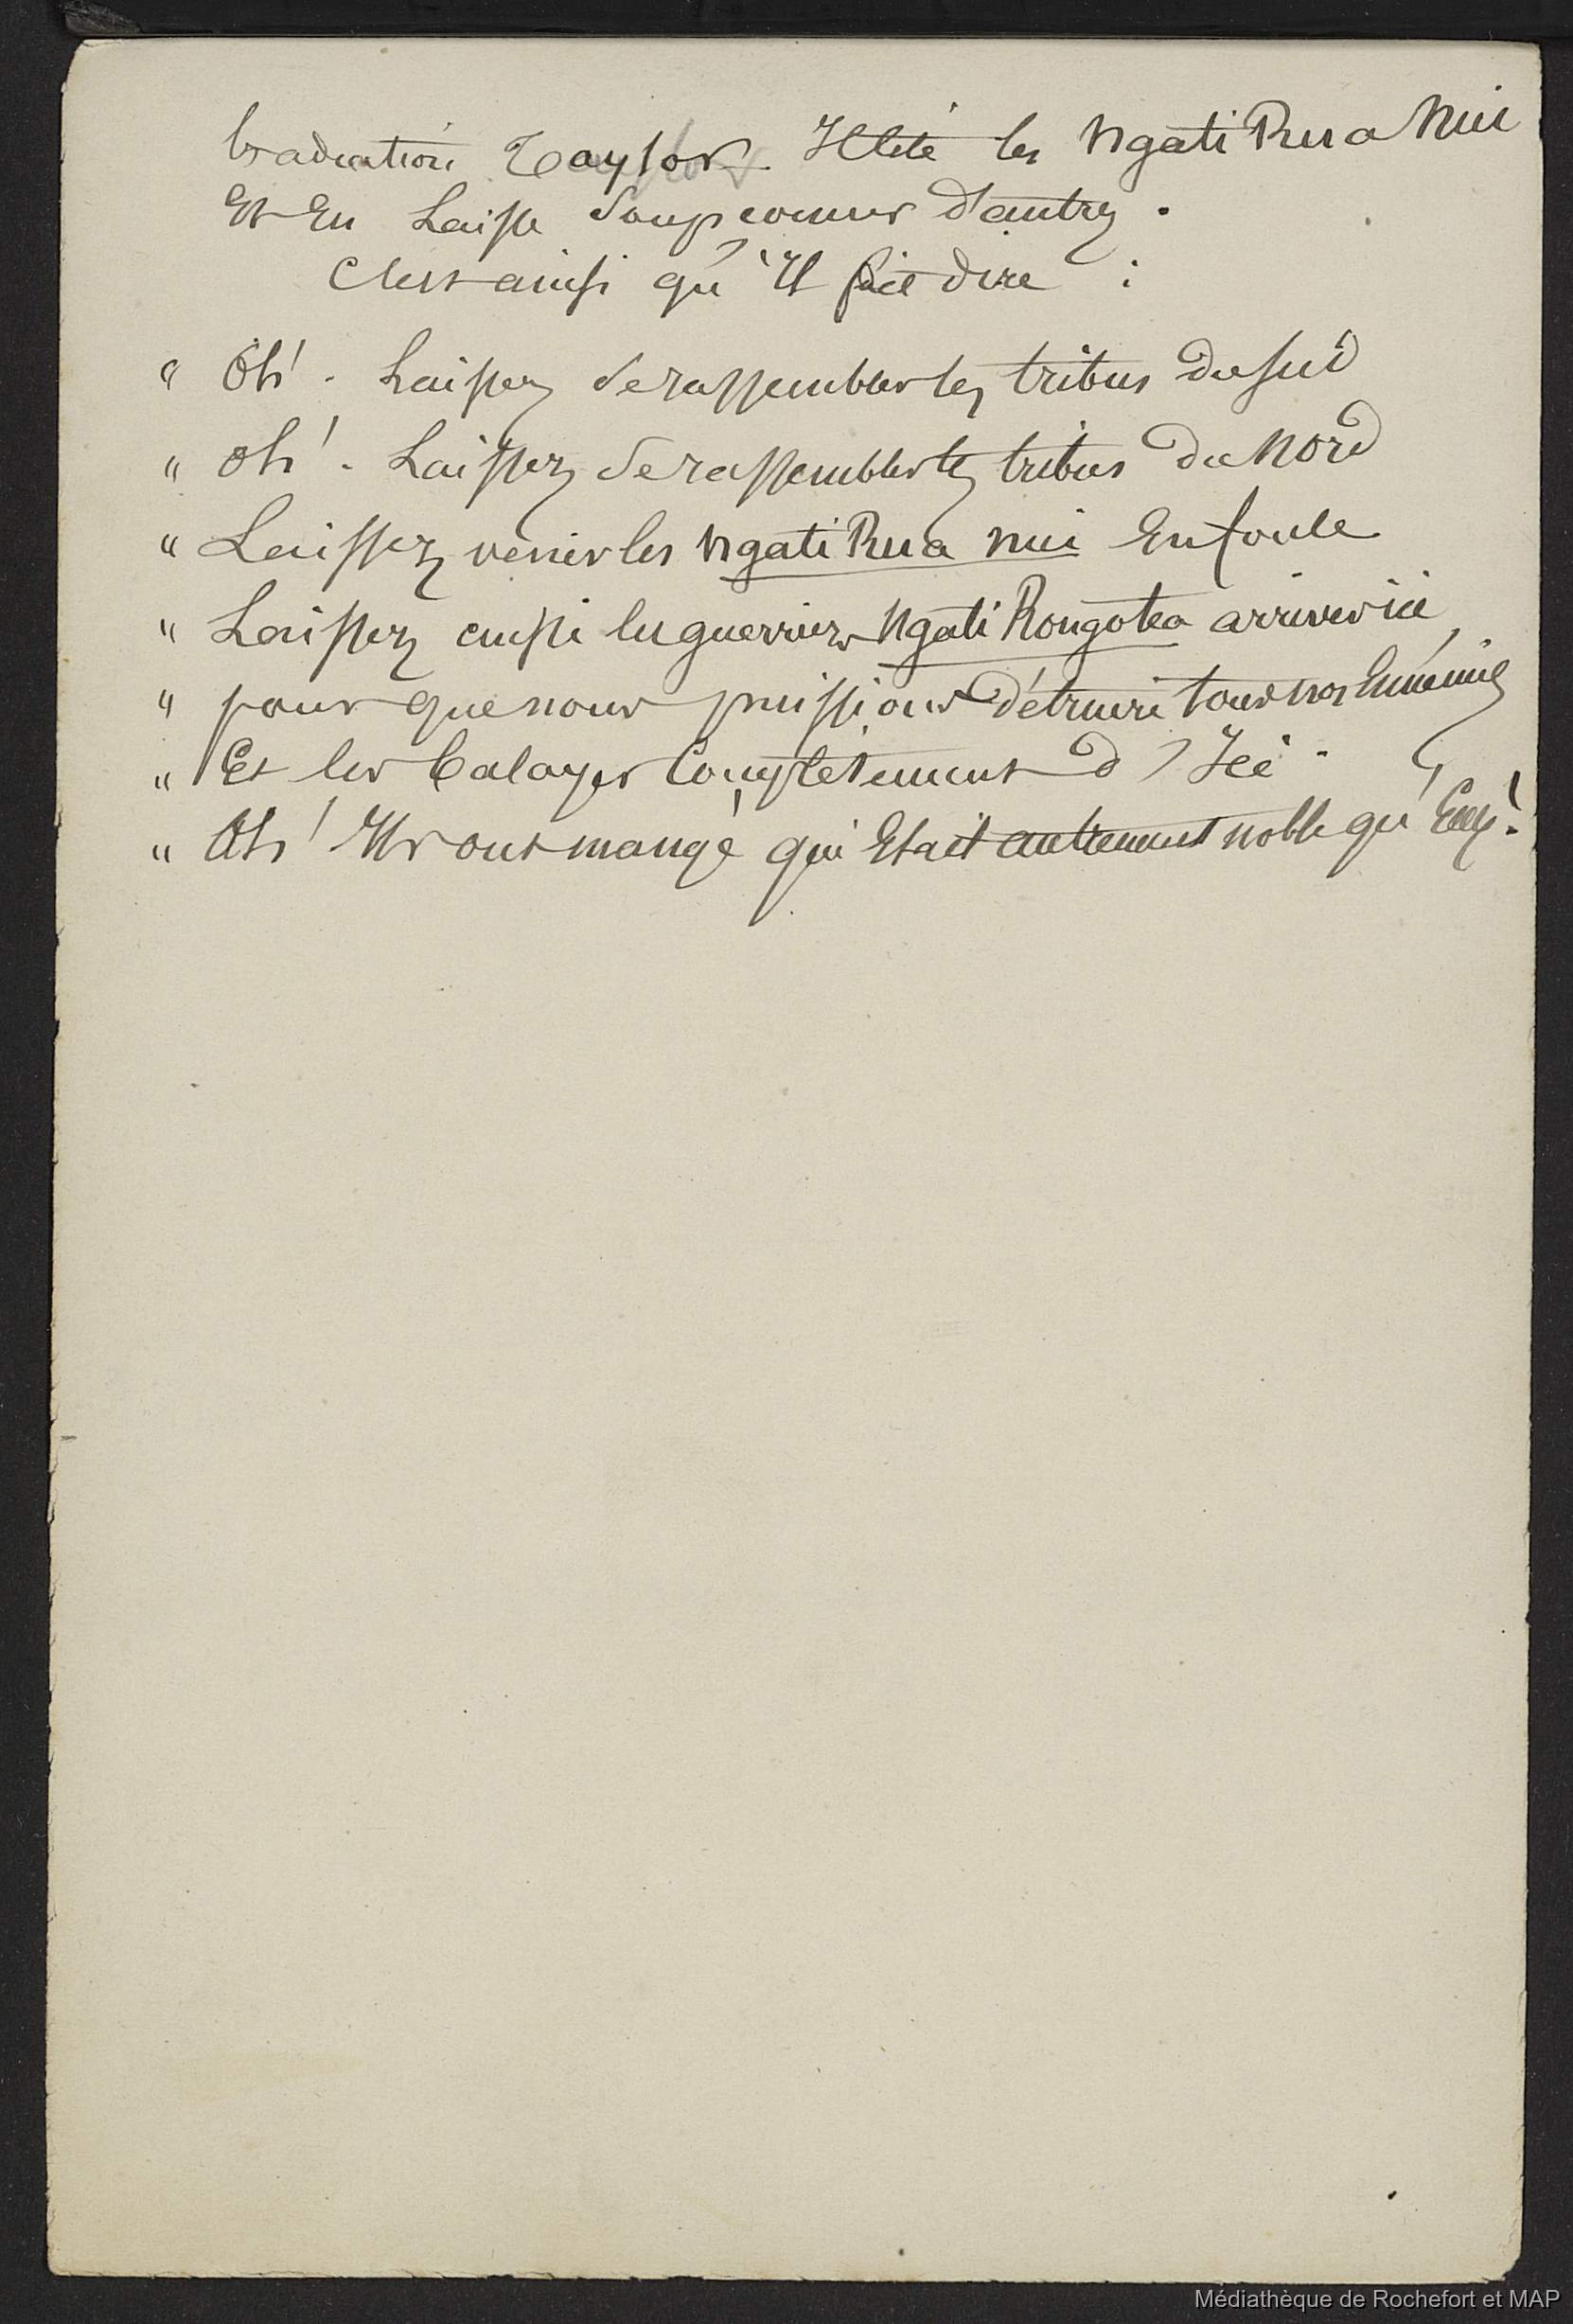 traduction Taylor. Il cite les Ngati Rua Nui
Et En Laisse Soupconner d'autres.
C'est ainsi qu'Il fait dire :
" Oh! . Laissez Se rassembler les tribus du Sud
" oh! . Laissez Se rassembler les tribus du Nord
" Laissez venir les Ngati Rua nui En foule
" Laissez aussi les guerriers Ngati Rongotea arriver ici,
" pour que nous puissions détruire tous nos Ennemis
" Et les balayer Complètement d'Ici .
" Ah! Ils ont mangé qui Etait autrement noble qu'Eux!.
Médiathèque de Rochefort et MAP